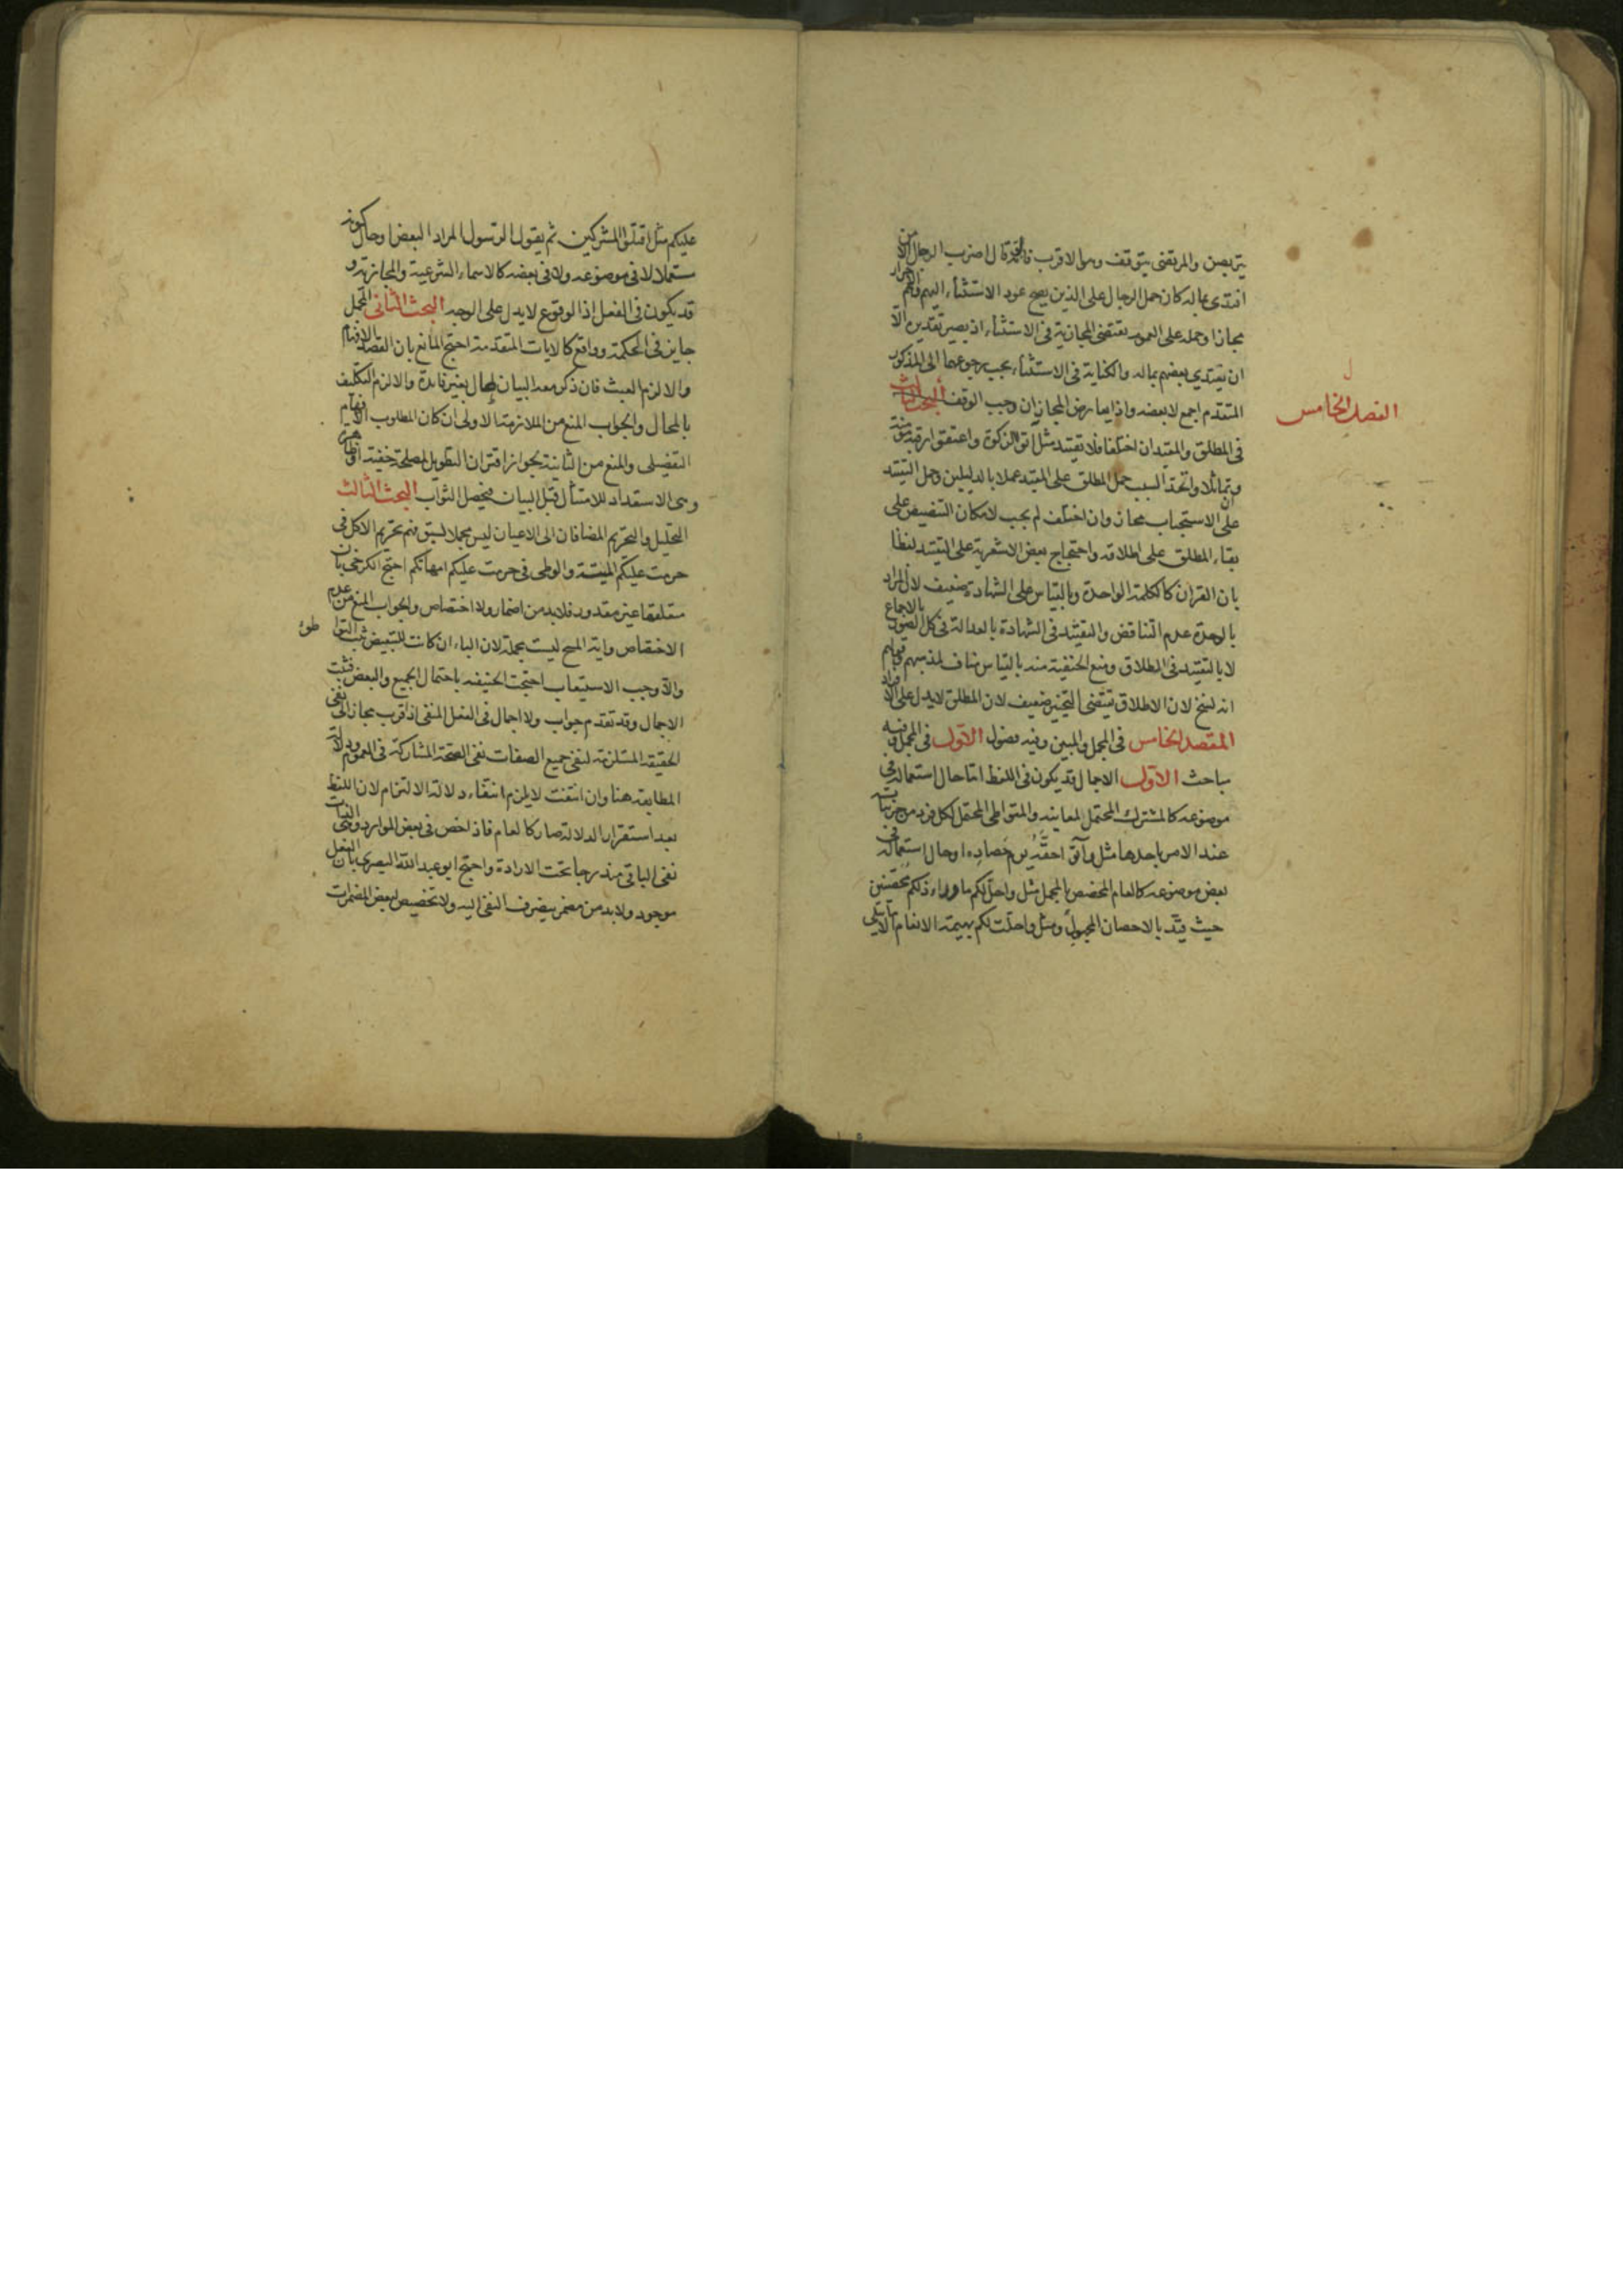 يتربصن والمرتضى يتوقف وهو الاقرب فانه لو قال اضرب الرجال الا من
افتدى بماله كان حمل الرجال على الذين يصح عود الاستثناء اليهم وهم الاحرار
مجازا وحمله على العموم يقتضى المجازية فى الاستثناء اذ يصير تقديره الا
ان يفتدي بعضهم بماله والكناية فى الاستثناء يجب رجوعها الى المذكور
المتقدم اجمع لا بعضه واذا تعارض المجازان وجب الوقف البحث الثالث
الفصل الخامس
فى المطلق والمقيد ان اختلفا فلا تقييد مثل آتوا الزكوة واعتقوا رقبة مؤمنة
وتماثلا واتحد السبب حمل المطلق على المقيد عملا بالدليلين وحمل التقييد
على الاستحباب مجاز وان اختلف لم يجب لامكان التنصيص على
بقاء المطلق على اطلاقه واحتجاج بعض الاشعرية على التقييد لفظا
بان القران كالكلمة الواحدة وبالقياس على الشهادة ضعيف لان المراد
بالوحدة عدم التناقض والتقييد فى الشهادة بالعدالة فى كل الصور بالاجماع
لا بالتقييد فى المطلاق ومنع الحنفية منه بالقياس مناف لمذهبهم وقولهم
انه نسخ لان الاطلاق يقتضى التخيير ضعيف لان المطلق لا يدل على الافراد
المقصد الخامس فى المجمل والمبين وفيه فصول الاول فى المجمل وفيه
مباحث الاول الاجمال قد يكون فى اللفظ اما حال استعماله فى
موضوعه كالمشترك المحتمل لمعانيه والمتواطى المحتمل لكل فرد من جزئياته
عند الامر باحدها مثل وآتوا حقه يوم حصاده او حال استعماله فى
بعض موضوعه كالعام المخصص بالمجمل مثل واحل لكم ما وراء ذلكم محصنين
حيث قيد بالاحصان المجهول ومثل واحلت لكم بهيمة الانعام الا ما يتلى
عليكم مثل اقتلوا المشركين ثم يقول الرسول المراد البعض او حال كونه
مستعملا لا فى موضوعه ولا فى بعضه كالاسماء الشرعية والمجازية و
قد يكون فى الفعل اذ الوقوع لا يدل على الوجه البحث الثانى المجمل
جايز فى الحكمة وواقع كالايات المتقدمة احتج المانع بان القصد الافهام
والا لزم العبث فان ذكر معه البيان لطال بغير فايدة والا لزم التكليف
بالمحال والجواب المنع من الملازمة الاولى ان كان المطلوب الافهام
التفصيلى والمنع من الثانية بجواز اقتران التطويل لمصلحة خفية او ظاهرة
وهى الاستعداد للامتثال قبل البيان فيحصل الثواب البحث الثالث
التحليل والتحريم المضافان الى الاعيان ليس مجملا لسبق فهم تحريم الاكل فى
حرمت عليكم الميتة والوطى فى حرمت عليكم امهاتكم احتج الكرخى بان
متعلقها غير مقدور فلا بد من اضمار ولا اختصاص والجواب المنع من عدم
الاختصاص واية المسح ليست مجملة لان الباء ان كانت للتبعيض ثبت التوا طوء
والا وجب الاستيعاب احتجت الحنيفه باحتمال الجميع والبعض فثبت
الاجمال وقد تقدم جوابه ولا اجمال فى الفعل المنفى اذ اقرب مجاز الى نفى
الحقيقة المستلزمة لنفى جميع الصفات نفى الصحة المشاركة فى العموم ودلالة
المطابقة هنا وان انتفت لا يلزم انتفاء دلالة الالتزام لان اللفظ
بعد استقرار الدلالة صار كالعام فاذا خص فى بعض الموارد وهى الذات
نفى الباقى مندرجا تحت الارادة واحتج ابو عبد الله البصرى بان الفعل
موجود ولا بد من مضمر يصرف النفى اليه ولا تخصيص لبعض المضمرات